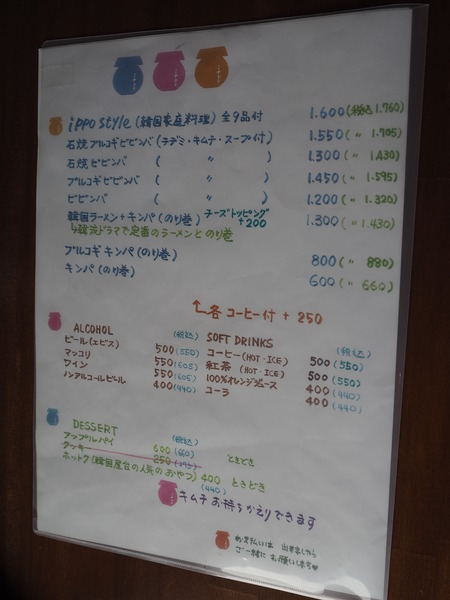 ippo style (韓国家庭料理) 全9品付 1.600(税込1.760)
石焼プルコギビビンバ (チヂミ・キムチ・スープ付) 1.550(〃 1.705)
石焼ビビンバ ( 〃 ) 1.300(〃 1.430)
プルコギビビンバ ( 〃 ) 1.450(〃 1.595)
ビビンバ ( 〃 ) 1.200(〃 1.320)
韓国ラーメン+キンパ(のり巻) チーズトッピング +200 1.300(〃 1.430)
↳韓流ドラマで定番のラーメンとのり巻
プルコギキンパ(のり巻) 800(〃 880)
キンパ(のり巻) 600(〃 660)
各コーヒー付 + 250
ALCOHOL (税込)
ビール(エビス) 500(550)
マッコリ 550(605)
ワイン 550(605)
ノンアルコールビール 400(440)
SOFT DRINKS (税込)
コーヒー(HOT・ICE) 500(550)
紅茶 (HOT・ICE) 500(550)
100%オレンジジュース 400(440)
コーラ 400(440)
DESSERT (税込)
アップルパイ 600(660) ときどき
クッキー 250
ホットク(韓国屋台の人気のおやつ) 400 ときどき
(440)
キムチお持ちかえりできます
お支払いは 出来ましたら
ご一緒に お願いします♡